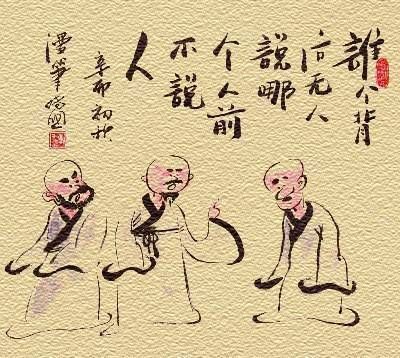 誰个背
后无人
說哪
个人前
不說
人
辛卯初秋
漫筆